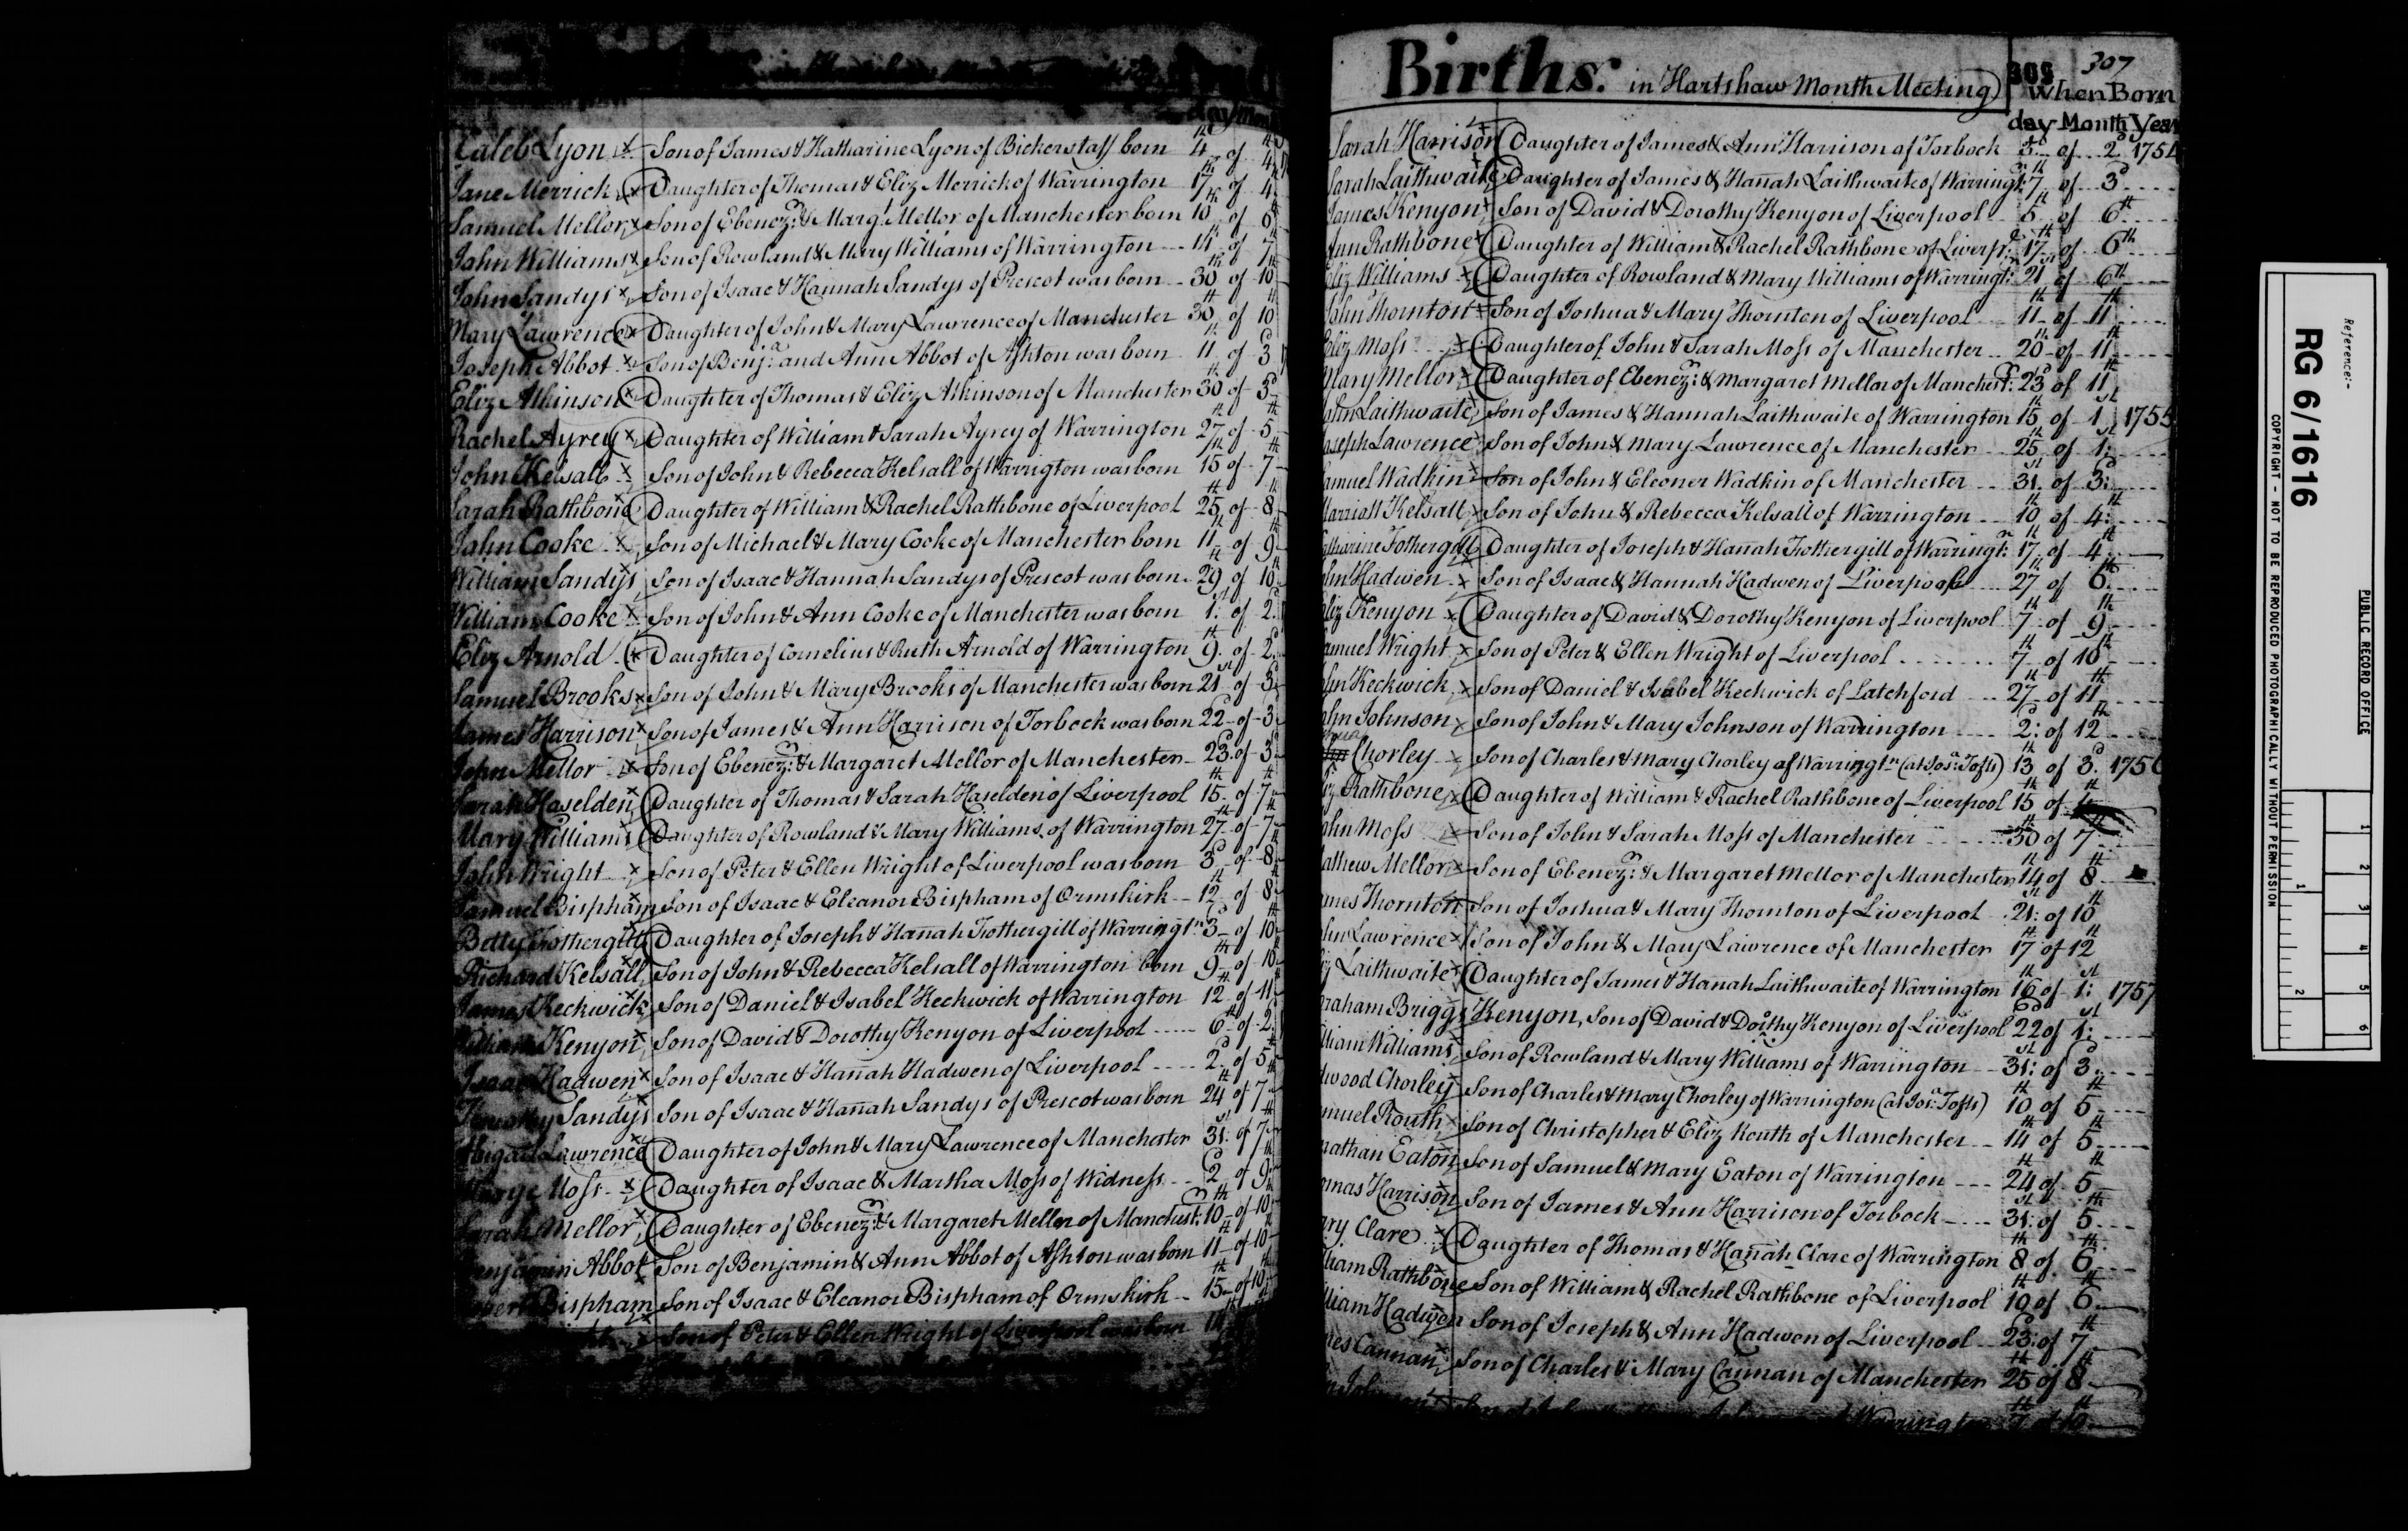 day Month
Caleb Lyon Son of James & Katharine Lyon of Bickerstaff born 4th of 4th
Jane Merrick Daughter of Thomas & Eliz Merrick of Warrington 17th of 4th
Samuel Mellor Son of Ebenezr. & Margt. Mellor of Manchester born 10th of 6th
John Williams Son of Rowland & Mary Williams of Warrington 11th of 7th
John Sandys Son of Isaac & Hannah Sandys of Prescot was born 30th of 10th
Mary Lawrence Daughter of John & Mary Lawrence of Manchester 30th of 10th
Joseph Abbot Son of Benja. and Ann Abbot of Ashton was born 11th of 3d
Eliz Atkinson Daughter of Thomas & Eliz Atkinson of Manchester 30th of 5th
Rachel Ayrey Daughter of William & Sarah Ayrey of Warrington 27th of 5th
John Kelsall Son of John & Rebecca Kelsall of Warrigton was born 15th of 7th
Sarah Rathbone Daughter of William & Rachel Rathbone of Liverpool 25th of 8th
John Cooke Son of Michael & Mary Cooke of Manchester born 11th of 9th
William Sandys Son of Isaac & Hannah Sandys of Prescot was born 29th of 10th
William Cooke Son of John & Ann Cooke of Manchester was born 1st of 2d
Eliz Arnold Daughter of Cornelius & Ruth Arnold of Warrington 9th of 2d
Samuel Brooks Son of John & Mary Brooks of Manchester was born 21st of 3d
James Harrison Son of James & Ann Harrison of Torbock was born 22d of 3d
John Mellor Son of Ebenezr: & Margaret Mellor of Manchester 23d of 3d
Sarah Haselden Daughter of Thomas & Sarah Haselden of Liverpool 15th of 7th
Mary Williams Daughter of Rowland & Mary Williams of Warrington 27th of 7th
John Wright Son of Peter & Ellen Wright of Liverpool was born 3d of 8th
Samuel Bispham Son of Isaac & Eleanor Bispham of Ormskirk 12th of 8th
Betty Fothergill Daughter of Joseph & Hanah Fothergill of Warringtn 3d of 10th
Richard Kelsall Son of John & Rebecca Kelsall of Warrington born 9th of 10th
James Keckwick Son of Daniel & Isabel Keckwick of Warrington 12th of 11th
William Kenyon Son of David & Dorothy Kenyon of Liverpool 6th of 2d
Isaac Hadwen Son of Isaac & Hanah Hadwen of Liverpool 2d of 5th
Timothy Sandys Son of Isaac & Hanah Sandys of Prescot was born 24th of 7th
Abigail Lawrence Daughter of John & Mary Lawrence of Manchester 31st of 7th
Moss Daughter of Isaac & Martha Moss of Widness 2d of 9th
Sarah Mellor Daughter of Ebenezr: & Margaret Mellor of Manchestr: 10th of 10th
Benjamin Abbot Son of Benjamin & Ann Abbot of Ashton was born 11th of 10th
Bispham Son of Isaac & Eleanor Bispham of Ormskirk 15th of 10th
Son of Peter & Ellen Wright of Liverpool was born
Births. in Hartshaw Month Meeting 309 307
when Born
day Month Year
Sarah Harrison Daughter of James & Ann Harrison of Torbock 3d of 2d 1754
Sarah Laithwaite Daughter of James & Hanah Laithwaite of Warringtn: 7th of 3d
James Kenyon Son of David & Dorothy Kenyon of Liverpool 5th of 6th
Ann Rathbone Daughter of William & Rachel Rathbone of Liverp: 17th of 6th
Eliz Williams Daughter of Rowland & Mary Williams of Warringtn: 21st of 6th
John Thornton Son of Joshua & Mary Thornton of Liverpool 11th of 11th
Eliz Moss Daughter of John & Sarah Moss of Manchester 20th of 11th
Mary Mellor Daughter of Ebenezr: & Margaret Mellor of Manchestr: 23d of 11th
John Laithwaite Son of James & Hannah Laithwaite of Warrington 15th of 1st 1755
Joseph Lawrence Son of John & Mary Lawrence of Manchester 25th of 1st
Samuel Wadkin Son of John & Eleoner Wadkin of Manchester 31st of 3d
Marriott Kelsall Son of John & Rebecca Kelsall of Warrington 10th of 4th
Catharine Fothergill Daughter of Joseph & Hanah Fothergill of Warringtn: 17th of 4th
John Hadwen Son of Isaac & Hannah Hadwen of Liverpool 27th of 6th
Eliz Kenyon Daughter of David & Dorothy Kenyon of Liverpool 7th of 9th
Samuel Wright Son of Peter & Ellen Wright of Liverpool 7th of 10th
John Keckwick Son of Daniel & Isabel Keckwick of Latchford 27th of 11th
John Johnson Son of John & Mary Johnson of Warrington 2d of 12th
Chorley Son of Charles & Mary Chorley of Warringtn (at Josa. Tofts) 13th of 3d 1756
Rathbone Daughter of William & Rachel Rathbone of Liverpool 15th of 4
John Moss Son of John & Sarah Moss of Manchester 30th of 7th
Mathew Mellor Son of Ebenezr: & Margaret Mellor of Manchester 14th of 8th
James Thornton Son of Joshua & Mary Thornton of Liverpool 21st of 10th
John Lawrence Son of John & Mary Lawrence of Manchester 17th of 12th
Laithwaite Daughter of James & Hanah Laithwaite of Warrington 16th of 1st 1757
Abraham Briggs Kenyon, Son of David & Dorthy Kenyon of Liverpool 22d of 1st
William Williams Son of Rowland & Mary Williams of Warrington 31st of 3d
Chorley Son of Charles & Mary Chorley of Warrington (at Josa. Tofts) 10th of 5th
Samuel Routh Son of Christopher & Eliz Routh of Manchester 14th of 5th
Jonathan Eaton Son of Samuel & Mary Eaton of Warrington 24th of 5th
Thomas Harrison Son of James & Ann Harrison of Torbock 31st of 5th
Clare Daughter of Thomas & Hanah Clare of Warrington 8th of 6th
William Rathbone Son of William & Rachel Rathbone of Liverpool 10th of 6th
William Hadwen Son of Joseph & Ann Hadwen of Liverpool 23d of 7th
Cannan Son of Charles & Mary Cannan of Manchester 25th of 8th
Warrington 7th of 10th
PUBLIC RECORD OFFICE
Reference:-
RG 6/1616
COPYRIGHT - NOT TO BE REPRODUCED PHOTOGRAPHICALLY WITHOUT PERMISSION
1 2 3 4 5 6
1 2